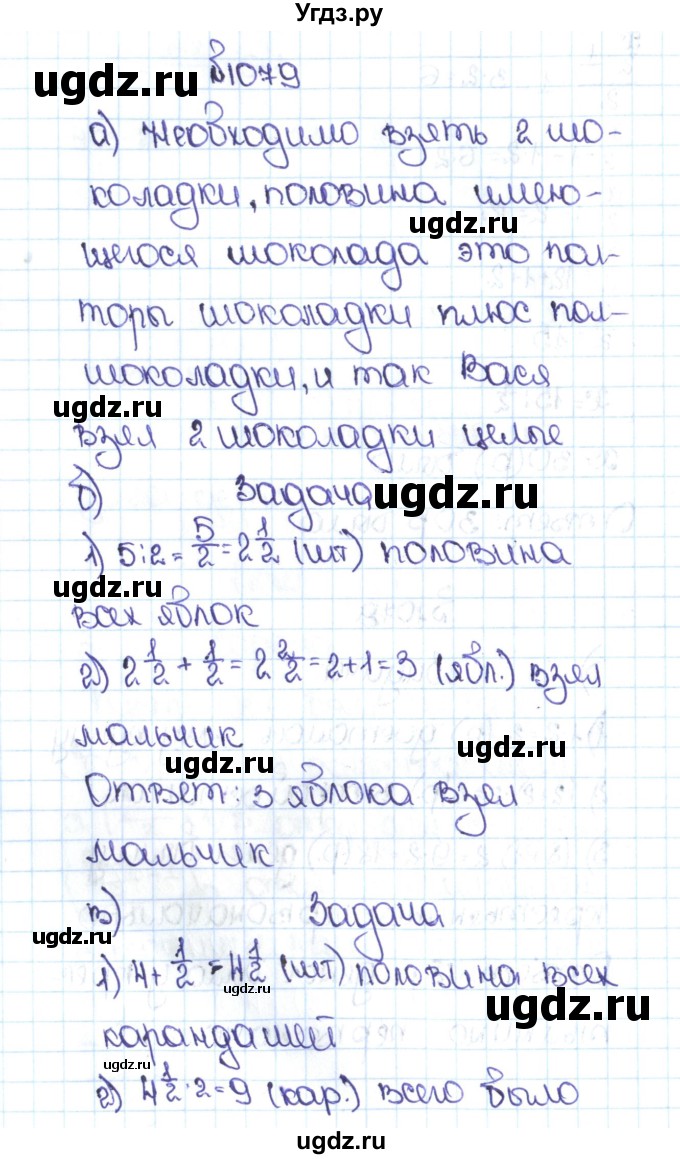 Угдз.ру
№1079
ugdz.ru
а) Необходимо взять 2 шо-
коладки, половина имею-
ugdz.ru
щегося шоколада это пол-
торы шоколадки плюс пол-
шоколадки, и так Вася
ugdz.ru
взял 2 шоколадки целые
б) Задача
ugdz.ru
1) 5:2=5/2=2 1/2 (шт) половина
ugdz.ru
всех яблок
2) 2 1/2 + 1/2 = 2 2/2 = 2+1=3 (ябл.) взял
мальчик
ugdz.ru
ugdz.ru
Ответ: 3 яблока взял
мальчик
в) Задача
ugdz.ru
1) 4+ 1/2 = 4 1/2 (шт) половина всех
ugdz.ru
ugdz.ru
карандашей
ugdz.ru
2) 4 1/2 · 2=9 (кар.) всего было
ugdz.ru